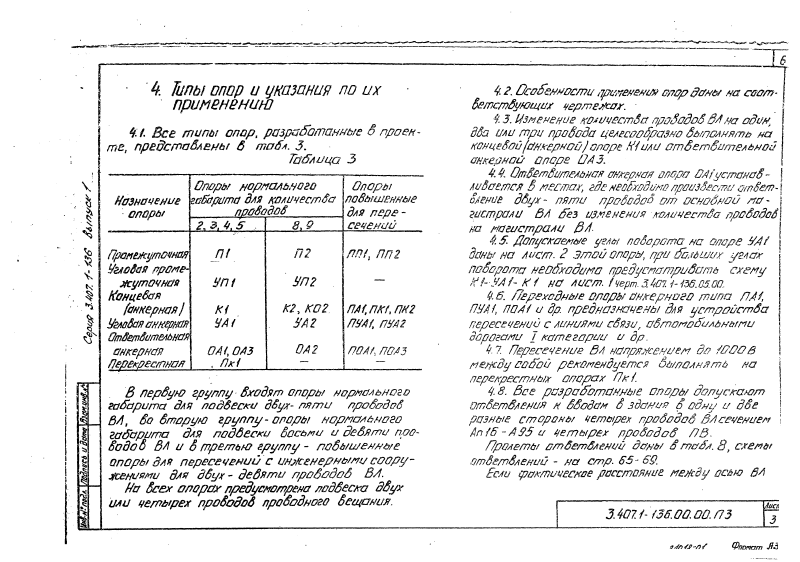 6
4. Типы опор и указания по их
применению
4.1. Все типы опор, разработанные в проек-
те, представлены в табл. 3.
Таблица 3
Назначение опоры | Опоры нормального габарита для количества проводов | Опоры повышенные для пере-сечений
2, 3, 4, 5 | 8, 9
Промежуточная П1 П2 ПП1, ПП2
Угловая проме-
жуточная УП1 УП2 —
Концевая
(анкерная) К1 К2, КО2 ПА1, ПК1, ПК2
Угловая анкерная УА1 УА2 ПУА1, ПУА2
Ответвительная
анкерная ОА1, ОА3 ОА2 ПОА1, ПОА3
Перекрестная Пк1 — —
В первую группу входят опоры нормального
габарита для подвески двух-пяти проводов
ВЛ, во вторую группу-опоры нормального
габарита для подвески восьми и девяти про-
водов ВЛ и в третью группу - повышенные
опоры для пересечений с инженерными соору-
жениями для двух-девяти проводов ВЛ.
На всех опорах предусмотрена подвеска двух
или четырех проводов проводного вещания.
4.2. Особенности применения опор даны на соот-
ветствующих чертежах.
4.3. Изменение количества проводов ВЛ на один,
два или три провода целесообразно выполнять на
концевой (анкерной) опоре К1 или ответвительной
анкерной опоре ОА3.
4.4. Ответвительная анкерная опора ОА1 устанав-
ливается в местах, где необходимо произвести ответ-
вление двух-пяти проводов от основной ма-
гистрали ВЛ без изменения количества проводов
на магистрали ВЛ.
4.5. Допускаемые углы поворота на опоре УА1
даны на лист. 2 этой опоры, при больших углах
поворота необходимо предусматривать схему
К1-УА1-К1 на лист. 1 черт. 3.407.1-136.05.00.
4.6. Переходные опоры анкерного типа ПА1,
ПУА1, ПОА1 и др. предназначены для устройства
пересечений с линиями связи, автомобильными
дорогами I категории и др.
4.7. Пересечение ВЛ напряжением до 1000 В
между собой рекомендуется выполнять на
перекрестных опорах Пк1.
4.8. Все разработанные опоры допускают
ответвления к вводам в здания в одну и две
разные стороны четырех проводов ВЛ сечением
Ап16-А95 и четырех проводов ПВ.
Пролеты ответвлений даны в табл. 8, схемы
ответвлений - на стр. 65-69.
Если фактическое расстояние между осью ВЛ
3.407.1-136.00.00.ПЗ
Лист
3
Формат А3
Серия 3.407.1-136 выпуск 1
Инв.№ подл. Подпись и дата